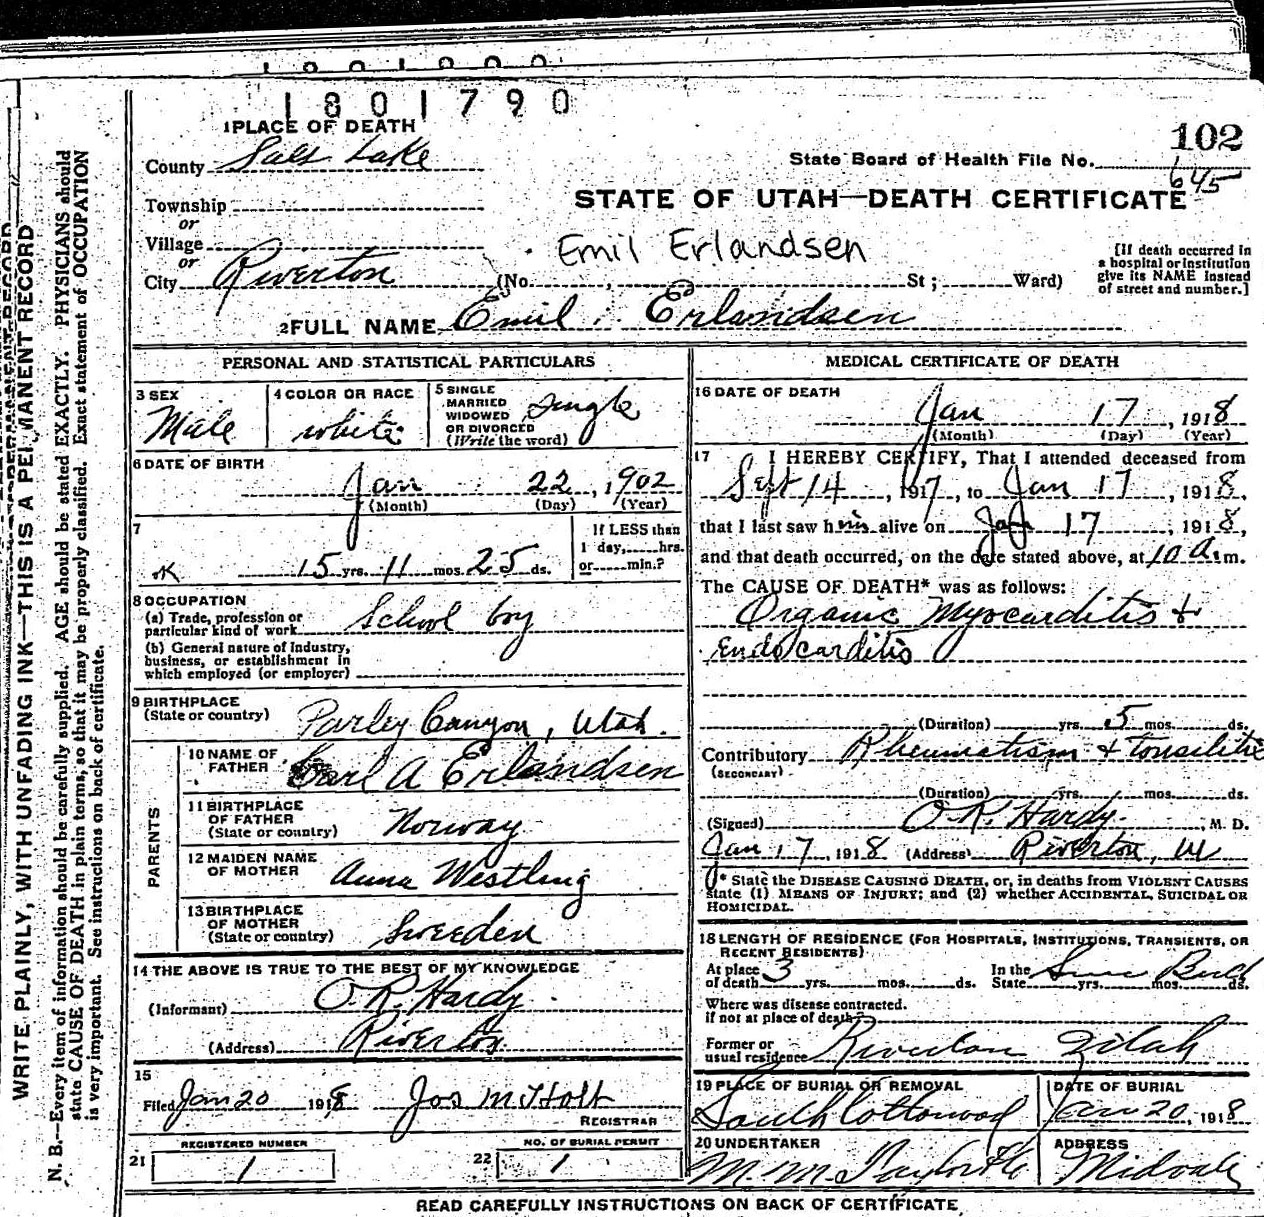 1801790
102
1 PLACE OF DEATH
County Salt Lake
State Board of Health File No. 645
Township
or
STATE OF UTAH—DEATH CERTIFICATE
Village
or
Emil Erlandsen
City Riverton (No. , St ; Ward)
[If death occurred in
a hospital or institution
give its NAME instead
of street and number.]
2 FULL NAME Emil Erlandsen
PERSONAL AND STATISTICAL PARTICULARS
3 SEX
Male
4 COLOR OR RACE
white
5 SINGLE
MARRIED
WIDOWED
OR DIVORCED
(Write the word)
Single
6 DATE OF BIRTH
Jan 22, 1902
(Month) (Day) (Year)
7
15 yrs. 11 mos. 25 ds.
If LESS than
1 day, hrs.
or min.?
8 OCCUPATION
(a) Trade, profession or
particular kind of work School boy
(b) General nature of Industry,
business, or establishment in
which employed (or employer)
9 BIRTHPLACE
(State or country) Parley Canyon, Utah.
PARENTS
10 NAME OF
FATHER Carl A Erlandsen
11 BIRTHPLACE
OF FATHER
(State or country) Norway
12 MAIDEN NAME
OF MOTHER Anna Westling
13 BIRTHPLACE
OF MOTHER
(State or country) Sweeden
14 THE ABOVE IS TRUE TO THE BEST OF MY KNOWLEDGE
(Informant) O. R. Hardy
(Address) Riverton.
15
Filed Jan 20 1918 Jos M Holt
REGISTRAR
REGISTERED NUMBER
21 1
NO. OF BURIAL PERMIT
22 1
MEDICAL CERTIFICATE OF DEATH
16 DATE OF DEATH
Jan 17, 1918
(Month) (Day) (Year)
17 I HEREBY CERTIFY, That I attended deceased from
Sept 14, 1917, to Jan 17, 1918,
that I last saw him alive on Jan 17, 1918,
and that death occurred, on the date stated above, at 10 a.m.
The CAUSE OF DEATH* was as follows:
Organic Myocarditis +
Endocarditis
(Duration) yrs. 5 mos. ds.
Contributory Rheumatism + tonsilitis
(SECONDARY)
(Duration) yrs. mos. ds.
(Signed) O. R. Hardy, M. D.
Jan 17, 1918 (Address) Riverton, Ut
* State the DISEASE CAUSING DEATH, or, in deaths from VIOLENT CAUSES
state (1) MEANS OF INJURY; and (2) whether ACCIDENTAL, SUICIDAL OR
HOMICIDAL.
18 LENGTH OF RESIDENCE (FOR HOSPITALS, INSTITUTIONS, TRANSIENTS, OR
RECENT RESIDENTS)
At place
of death 3 yrs. mos. ds.
In the
State Since Birth yrs. mos. ds.
Where was disease contracted.
if not at place of death?
Former or
usual residence Riverton Utah
19 PLACE OF BURIAL OR REMOVAL
South Cottonwood
DATE OF BURIAL
Jan 20, 1918
20 UNDERTAKER
M. M.
ADDRESS
Midvale
READ CAREFULLY INSTRUCTIONS ON BACK OF CERTIFICATE
WRITE PLAINLY, WITH UNFADING INK—THIS IS A PERMANENT RECORD
N. B.—Every item of information should be carefully supplied. AGE should be stated EXACTLY. PHYSICIANS should
state CAUSE OF DEATH in plain terms, so that it may be properly classified. Exact statement of OCCUPATION
is very important. See instructions on back of certificate.